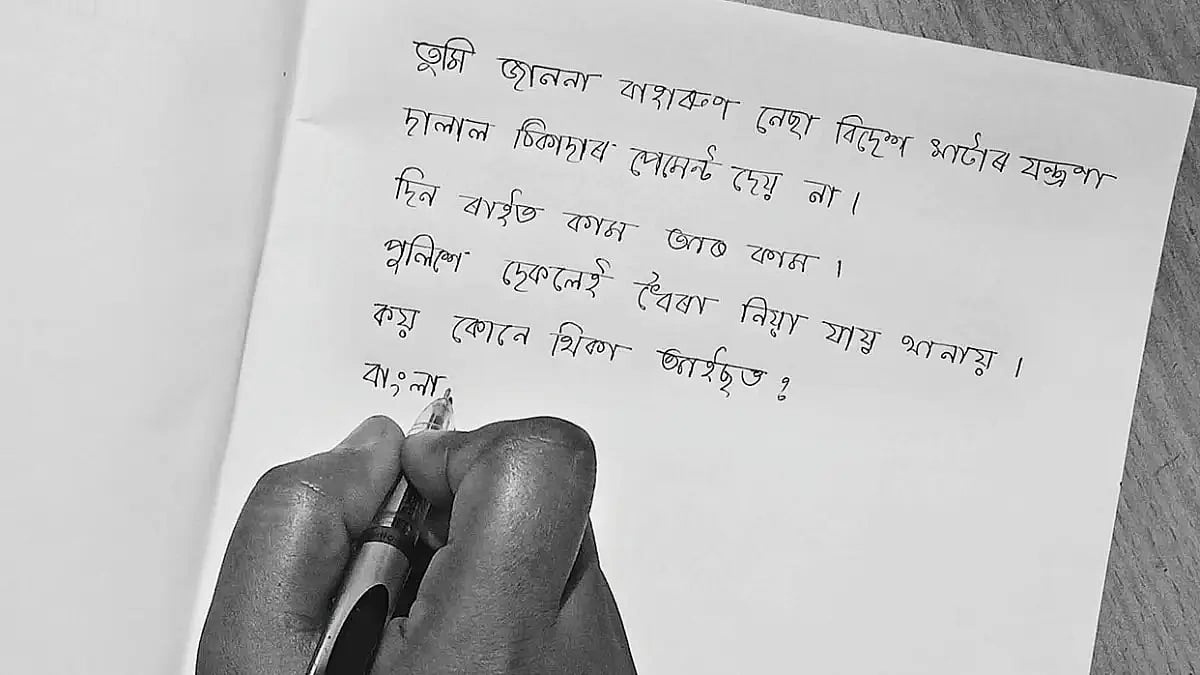 তুমি জাননা বাহাৰুণ নেছা বিদেশ মাটীৰ যন্ত্ৰণা
দালাল ঠিকাদাৰ পেমেন্ট দেয় না।
দিন ৰাইত কাম আৰ কাম।
পুলিশে দেকলেই ধৈৰা নিয়া যায় থানায়।
কয় কোনে থিকা আইছত?
বাংলা